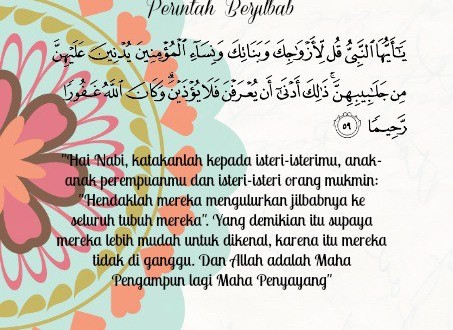 Perintah Berjilbab
يَٰٓأَيُّهَا ٱلنَّبِىُّ قُل لِّأَزْوَٰجِكَ وَبَنَاتِكَ وَنِسَآءِ ٱلْمُؤْمِنِينَ يُدْنِينَ عَلَيْهِنَّ
مِن جَلَٰبِيبِهِنَّ ۚ ذَٰلِكَ أَدْنَىٰٓ أَن يُعْرَفْنَ فَلَا يُؤْذَيْنَ ۗ وَكَانَ ٱللَّهُ غَفُورًا
رَّحِيمًا ٥٩
"Hai Nabi, katakanlah kepada isteri-isterimu, anak-
anak perempuanmu dan isteri-isteri orang mukmin:
"Hendaklah mereka mengulurkan jilbabnya ke
seluruh tubuh mereka". Yang demikian itu supaya
mereka lebih mudah untuk dikenal, karena itu mereka
tidak di ganggu. Dan Allah adalah Maha
Pengampun lagi Maha Penyayang"